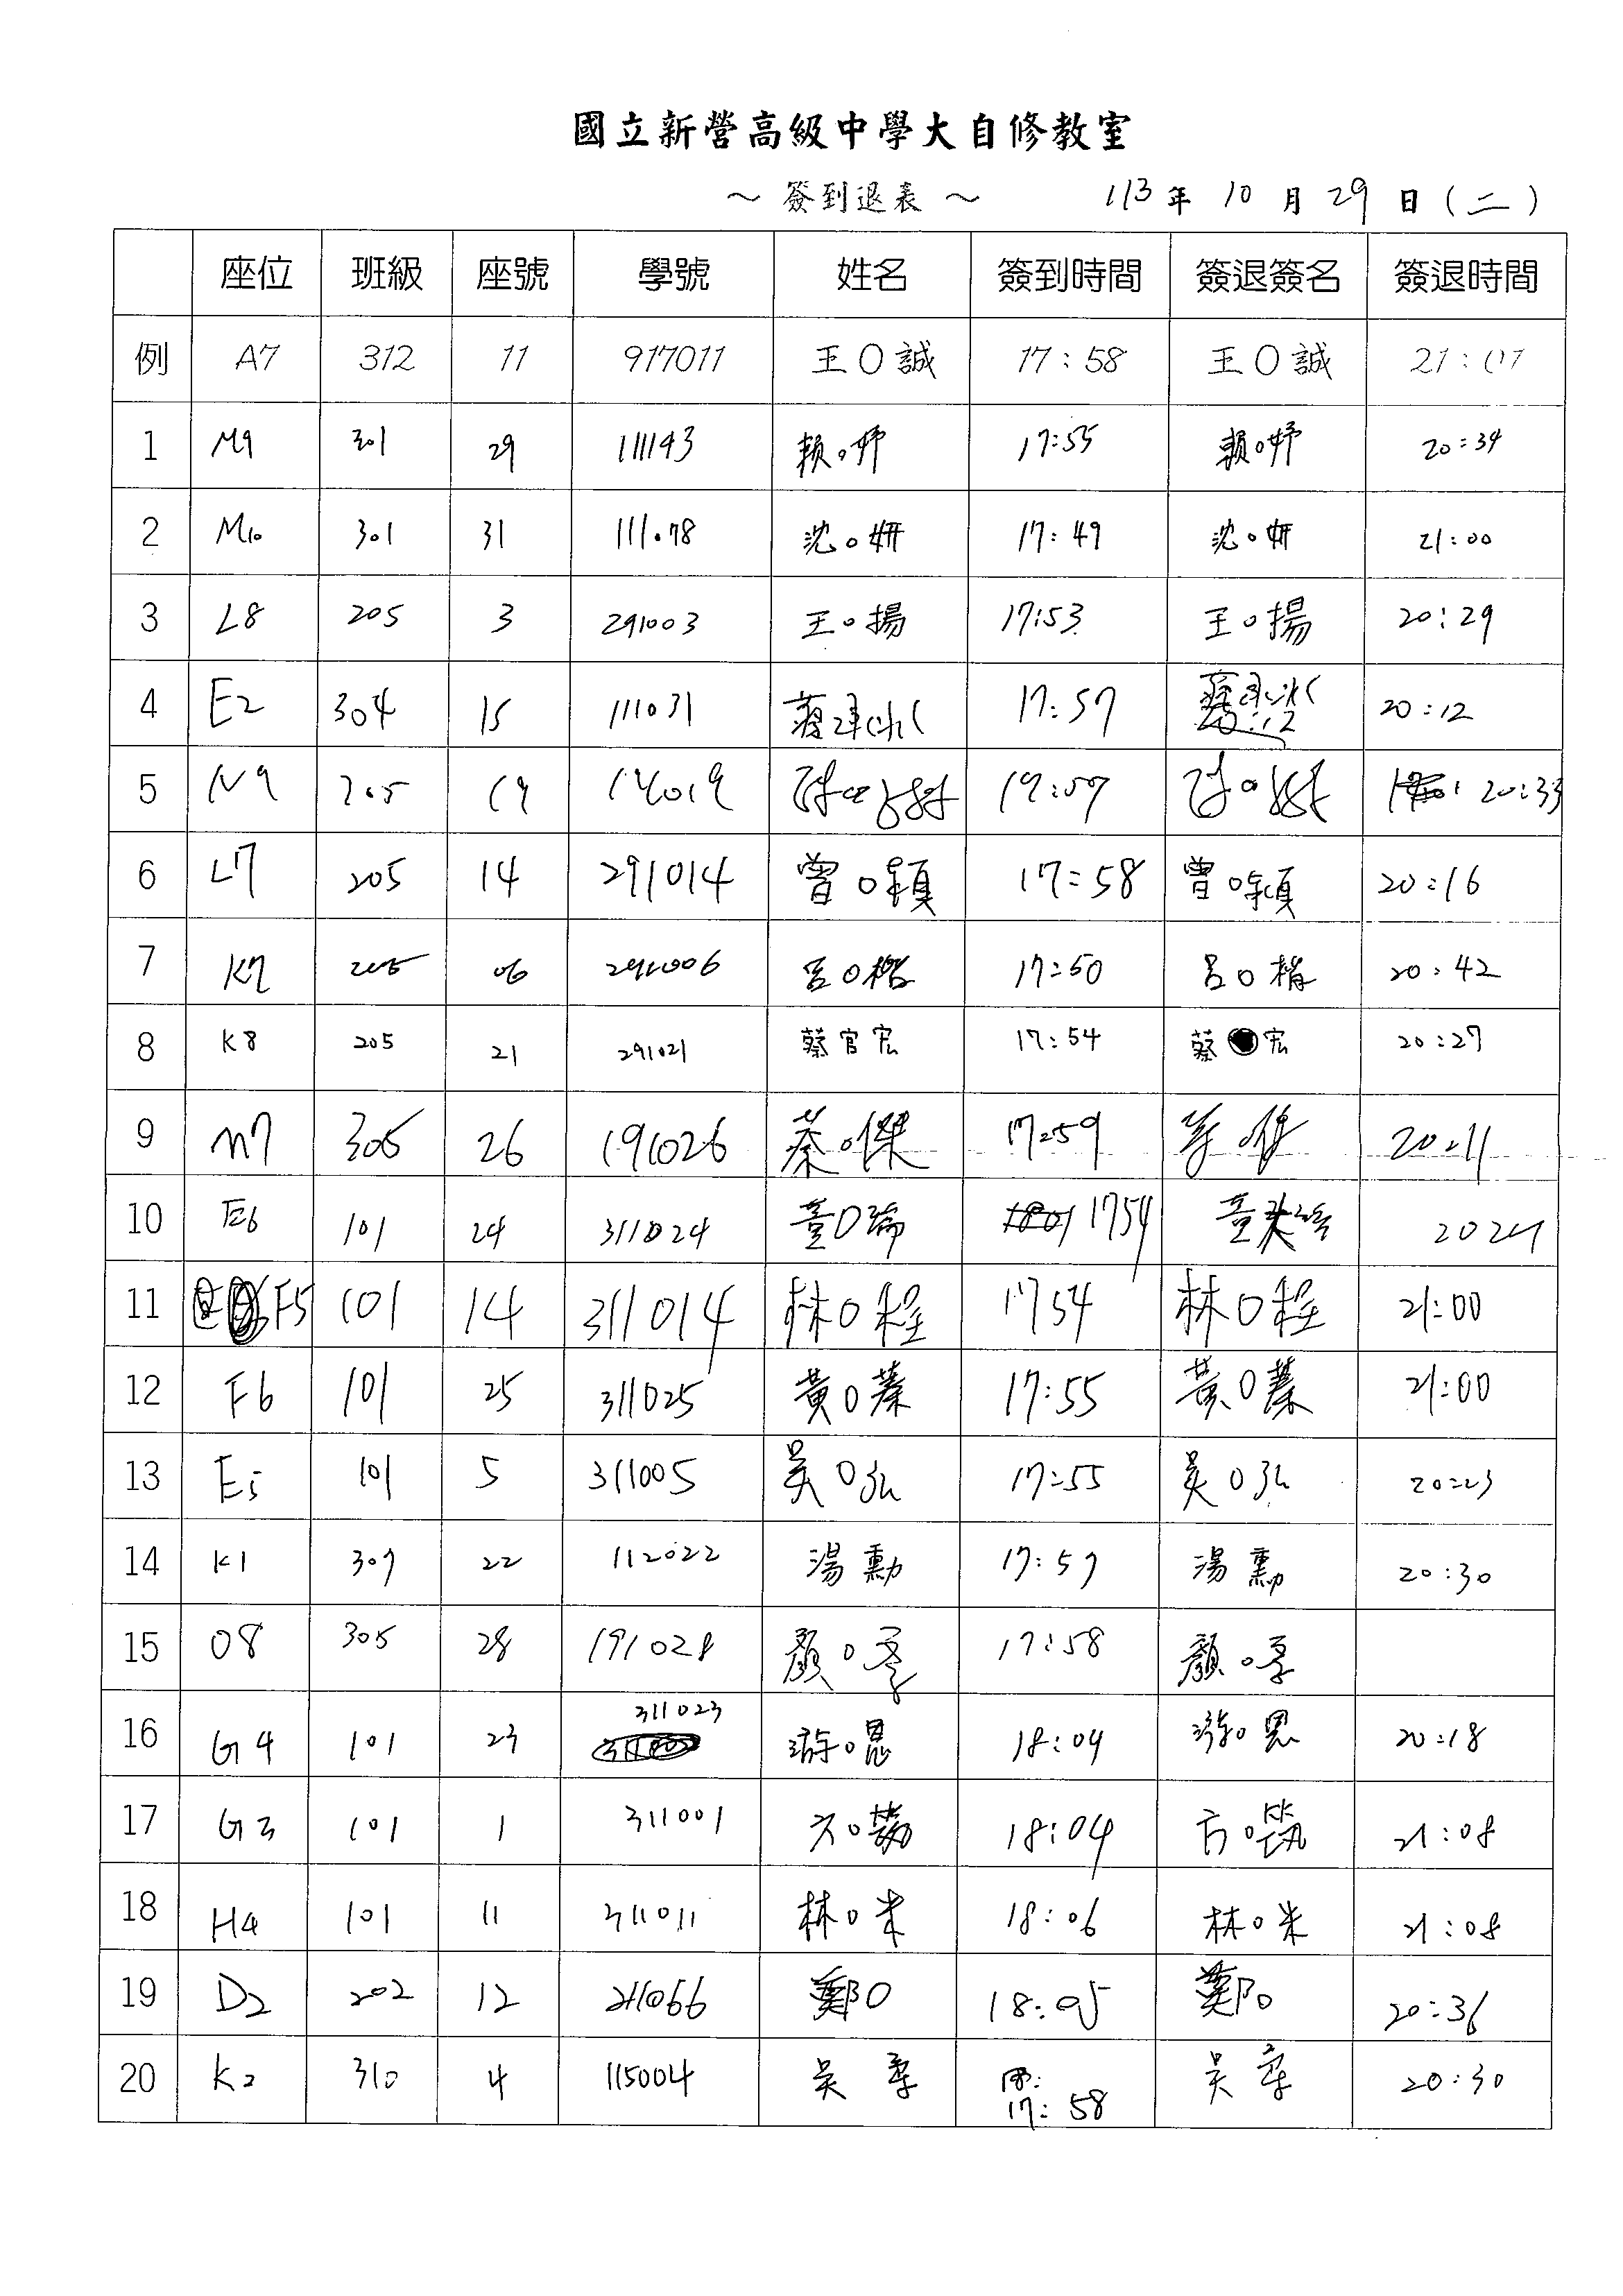 國立新營高級中學大自修教室
～ 簽到退表 ～ 113年 10月 29日(二)
座位 班級 座號 學號 姓名 簽到時間 簽退簽名 簽退時間
例 A7 312 11 917011 王〇誠 17:58 王〇誠 21:01
1 M9 301 29 111143 賴〇妤 17:55 賴〇妤 20:34
2 M10 301 31 111078 沈〇妍 17:49 沈〇妍 21:00
3 L8 205 3 291003 王〇揚 17:53 王〇揚 20:29
4 E2 304 15 111031 17:57 20:12
5 N9 205 19 20:33
6 L7 205 14 291014 曾〇穎 17:58 曾〇穎 20:16
7 K7 205 06 291006 呂〇楷 17:50 呂〇楷 20:42
8 K8 205 21 291021 蔡官宏 17:54 蔡 宏 20:27
9 M7 305 26 191026 蔡〇傑 17:59 20:11
10 E6 101 24 311024 1754 2024
11 F5 101 14 311014 林〇程 1754 林〇程 21:00
12 F6 101 25 311025 黃〇蓁 17:55 黃〇蓁 21:00
13 E5 101 5 311005 吳〇泓 17:55 吳〇泓 20:23
14 K1 307 22 112022 湯 勳 17:57 湯 勳 20:30
15 O8 305 28 191028 顏〇 17:58 顏〇
16 G4 101 23 311023 游〇恩 18:04 游〇恩 20:18
17 G3 101 1 311001 方〇 18:04 方〇筑 21:08
18 H4 101 11 311011 林〇米 18:06 林〇米 21:08
19 D2 202 12 211066 鄭〇 18:05 鄭〇 20:36
20 K2 310 4 115004 吳 17:58 吳 20:30